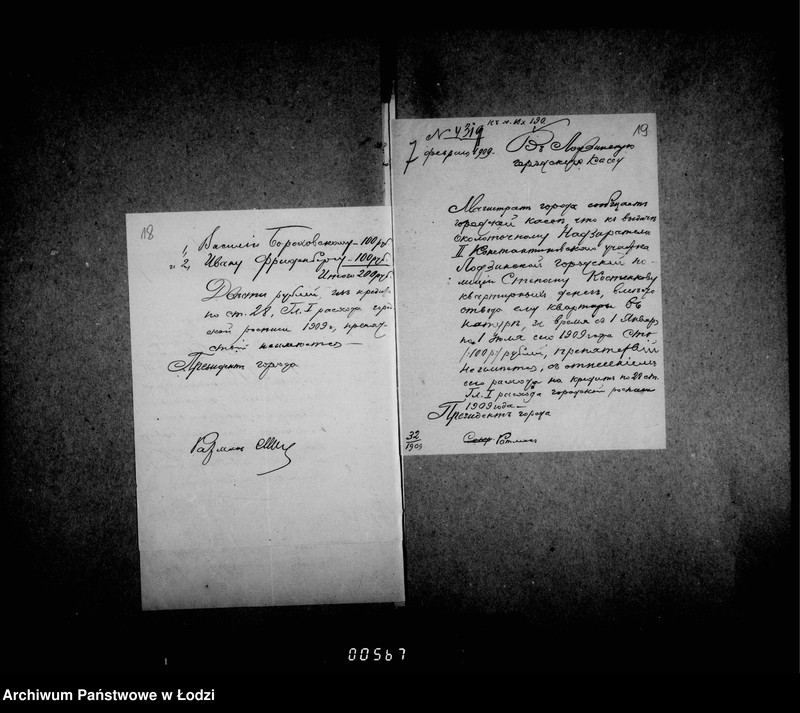 18
1, Василію Бороховскому – 100 руб
и 2, Ивану Фриденбергу – 100 руб.
Итого 200 руб.
Двѣсти рублей, изъ кредита
по ст. 28, Гл. I расхода город
ской росписи 1909 г., препят
ствій
Президентъ города
19
къ н. вх 190
N 4319
7 февраля 1909.
Въ Лодзинскую
городскую кассу
Магистратъ города сообщаетъ
городской кассѣ, что къ выдачѣ
околоточному Надзирателю
II Константиновскаго участка
Лодзинской городской по-
лиціи Степану Костенкову
квартирныхъ денегъ, вмѣсто
отвода ему квартиры въ
натурѣ, за время съ 1 Января
по 1 Іюля сего 1909 года сто
/100 р/ рублей, препятствій
не имѣется, съ отнесеніемъ
сего расхода на кредитъ по 28 ст.
Гл. I расхода городской росписи
1909 года –
Президентъ города
32
1909
00567
Archiwum Państwowe w Łodzi